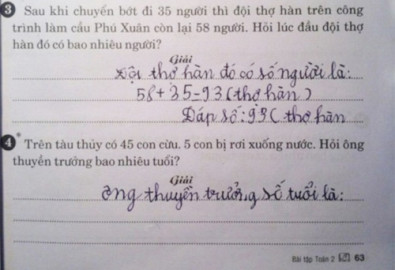 3 Sau khi chuyển bớt đi 35 người thì đội thợ hàn trên công
trình làm cầu Phú Xuân còn lại 58 người. Hỏi lúc đầu đội thợ
hàn đó có bao nhiêu người?
Giải
Đội thợ hàn đó có số người là:
58+35=93 (thợ hàn)
Đáp số: 93 (thợ hàn
4* Trên tàu thủy có 45 con cừu. 5 con bị rơi xuống nước. Hỏi ông
thuyền trưởng bao nhiêu tuổi?
Giải
Ông thuyền trưởng số tuổi là:
Bài tập Toán 2 63